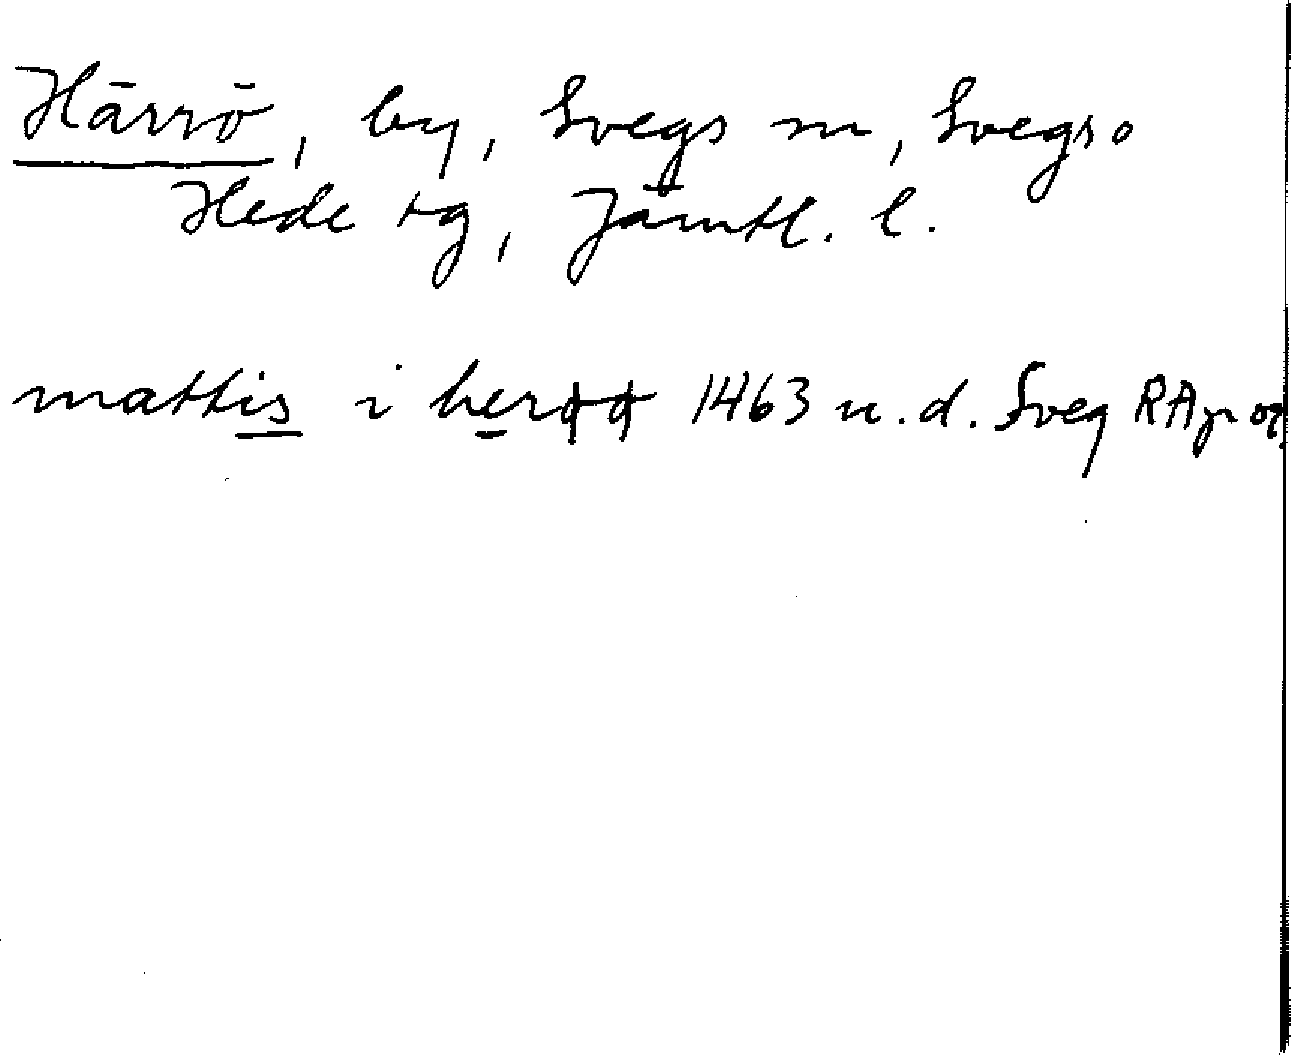 Härrö, by, Svegs sn, Svegs o
Hede tg, Jämtl. l.
mattis i herøø 1463 u. d. Sveg RApr or